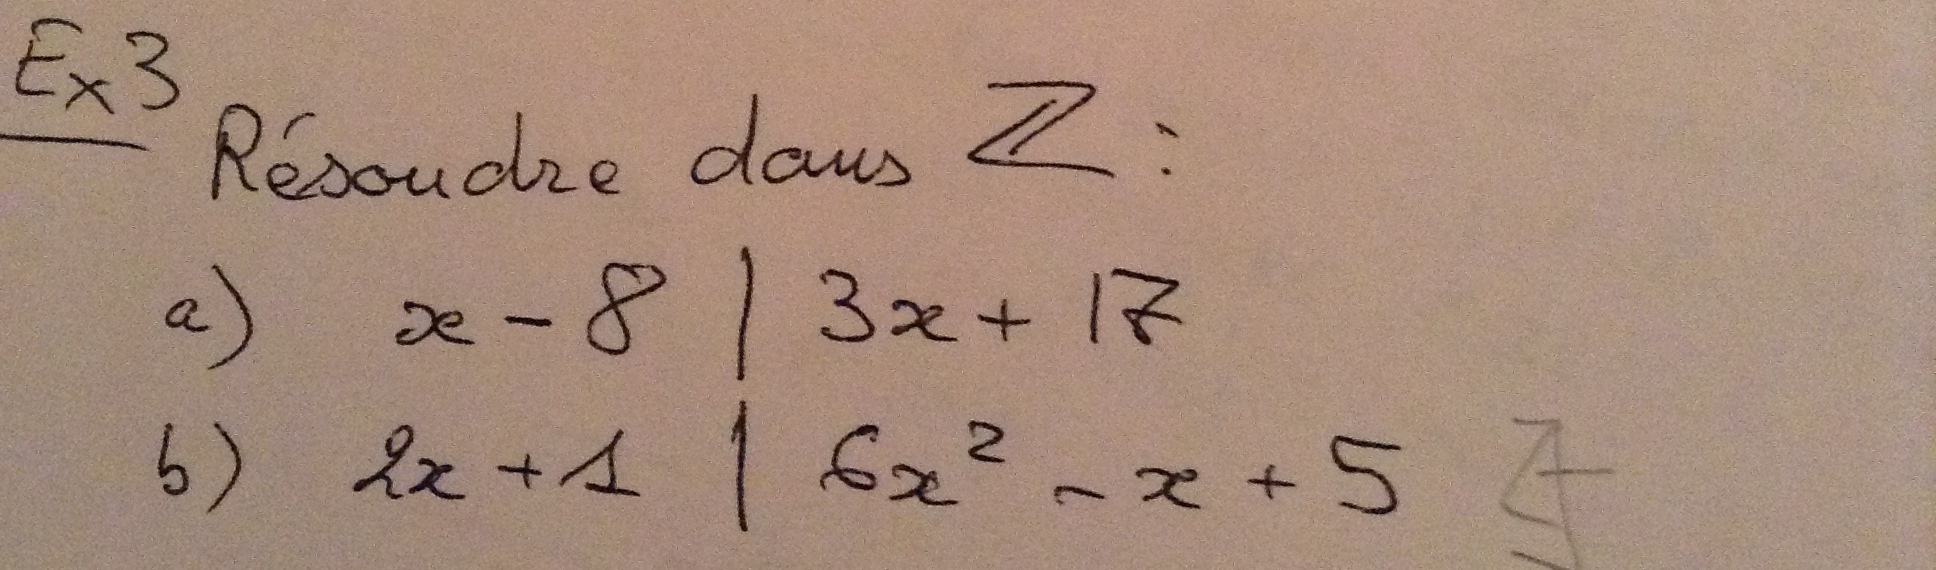 Ex3
Résoudre dans ℤ:
a) x - 8 | 3x + 17
b) 2x + 1 | 6x² - x + 5